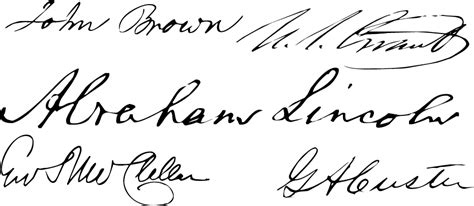 John Brown
U. S. Grant
Abraham Lincoln
Geo B McClellan
G A Custer